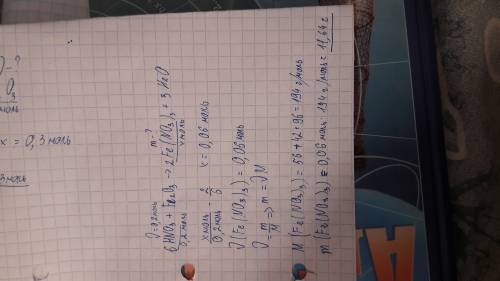 ν - ?
O₃
моль
x = 0,3 моль
3 моль
ν=0,2моль m-?
6HNO₃ + Fe₂O₃ → 2Fe(NO₃)₃ + 3H₂O
0,2моль x моль
x моль / 0,2 моль = 2/6 x = 0,06 моль
ν(Fe(NO₃)₃) = 0,06 моль
ν = m/M => m = ν M
M(Fe(NO₃)₃) = 56+42+96 = 194 г/моль
m(Fe(NO₃)₃) = 0,06 моль · 194 г/моль = 11,64 г